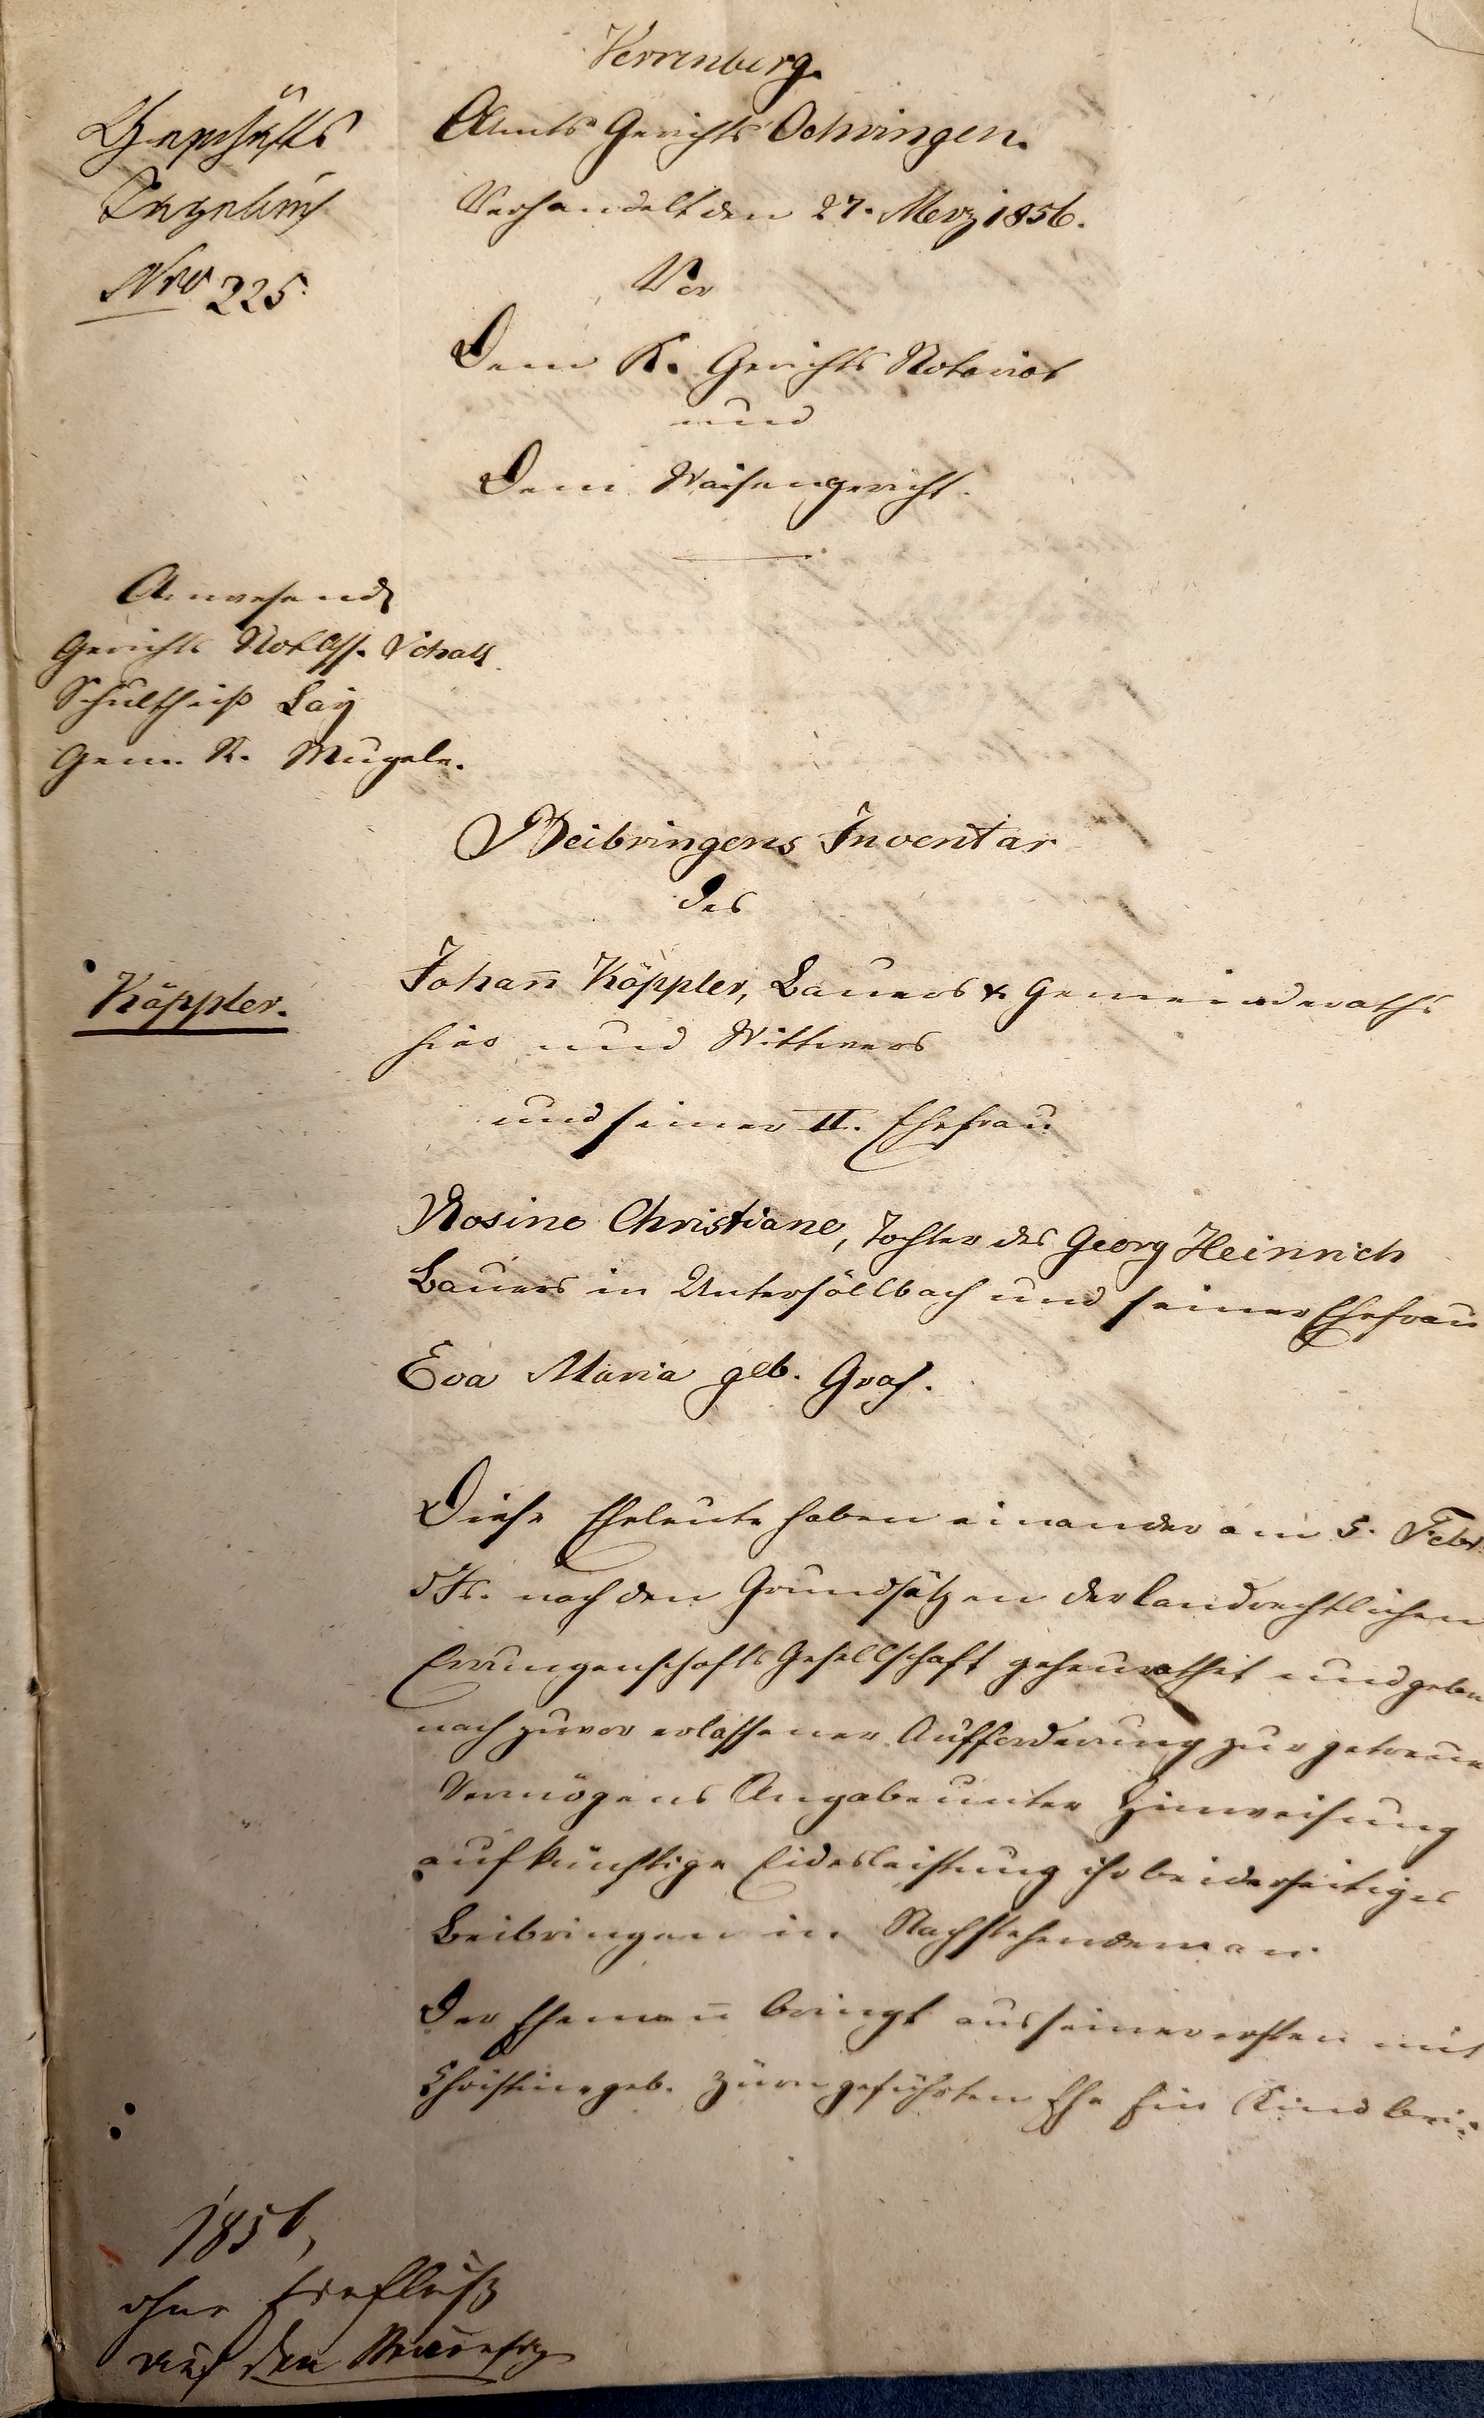 Verrenberg.
Geschäfts
Tagebuch
Nro 225.
Amts Gerichts Oehringen.
Verhandelt den 27. Merz 1856.
Vor
Dem K. Gerichts Notariat
und
Dem Waisengericht.
Anwesend
Gerichts Not. Ass. Schall
Schultheiß Lay
Gem. R. Mugele.
Beibringens Inventar
des
Köppler.
Johann̄ Köppler, Bauers & Gemeinderaths
hier und Wittwers
und seiner II. Ehefrau
Rosine Christiane, Tochter des Georg Heinrich
Bauers in Untersöllbach und seiner Ehefrau
Eva Maria geb. Graf.
Diese Eheleute haben einander am 5. Febr.
d. Js. nach den Grundsätzen der landrechtlichen
Errungenschafts Gesellschaft geheurathet und geben
nach zuvor erlassener Aufforderung zur getreuen
Vermögens Angabe unter Hinweisung
auf künftige Eidesleistung ihr beiderseitiges
Beibringen in Nachstehendem an:
Der Ehemañ bringt aus seiner ersten mit
Christine geb. Zürn geführten Ehe Ein Kind bei:
1856,
ohne Einfluß
auf den